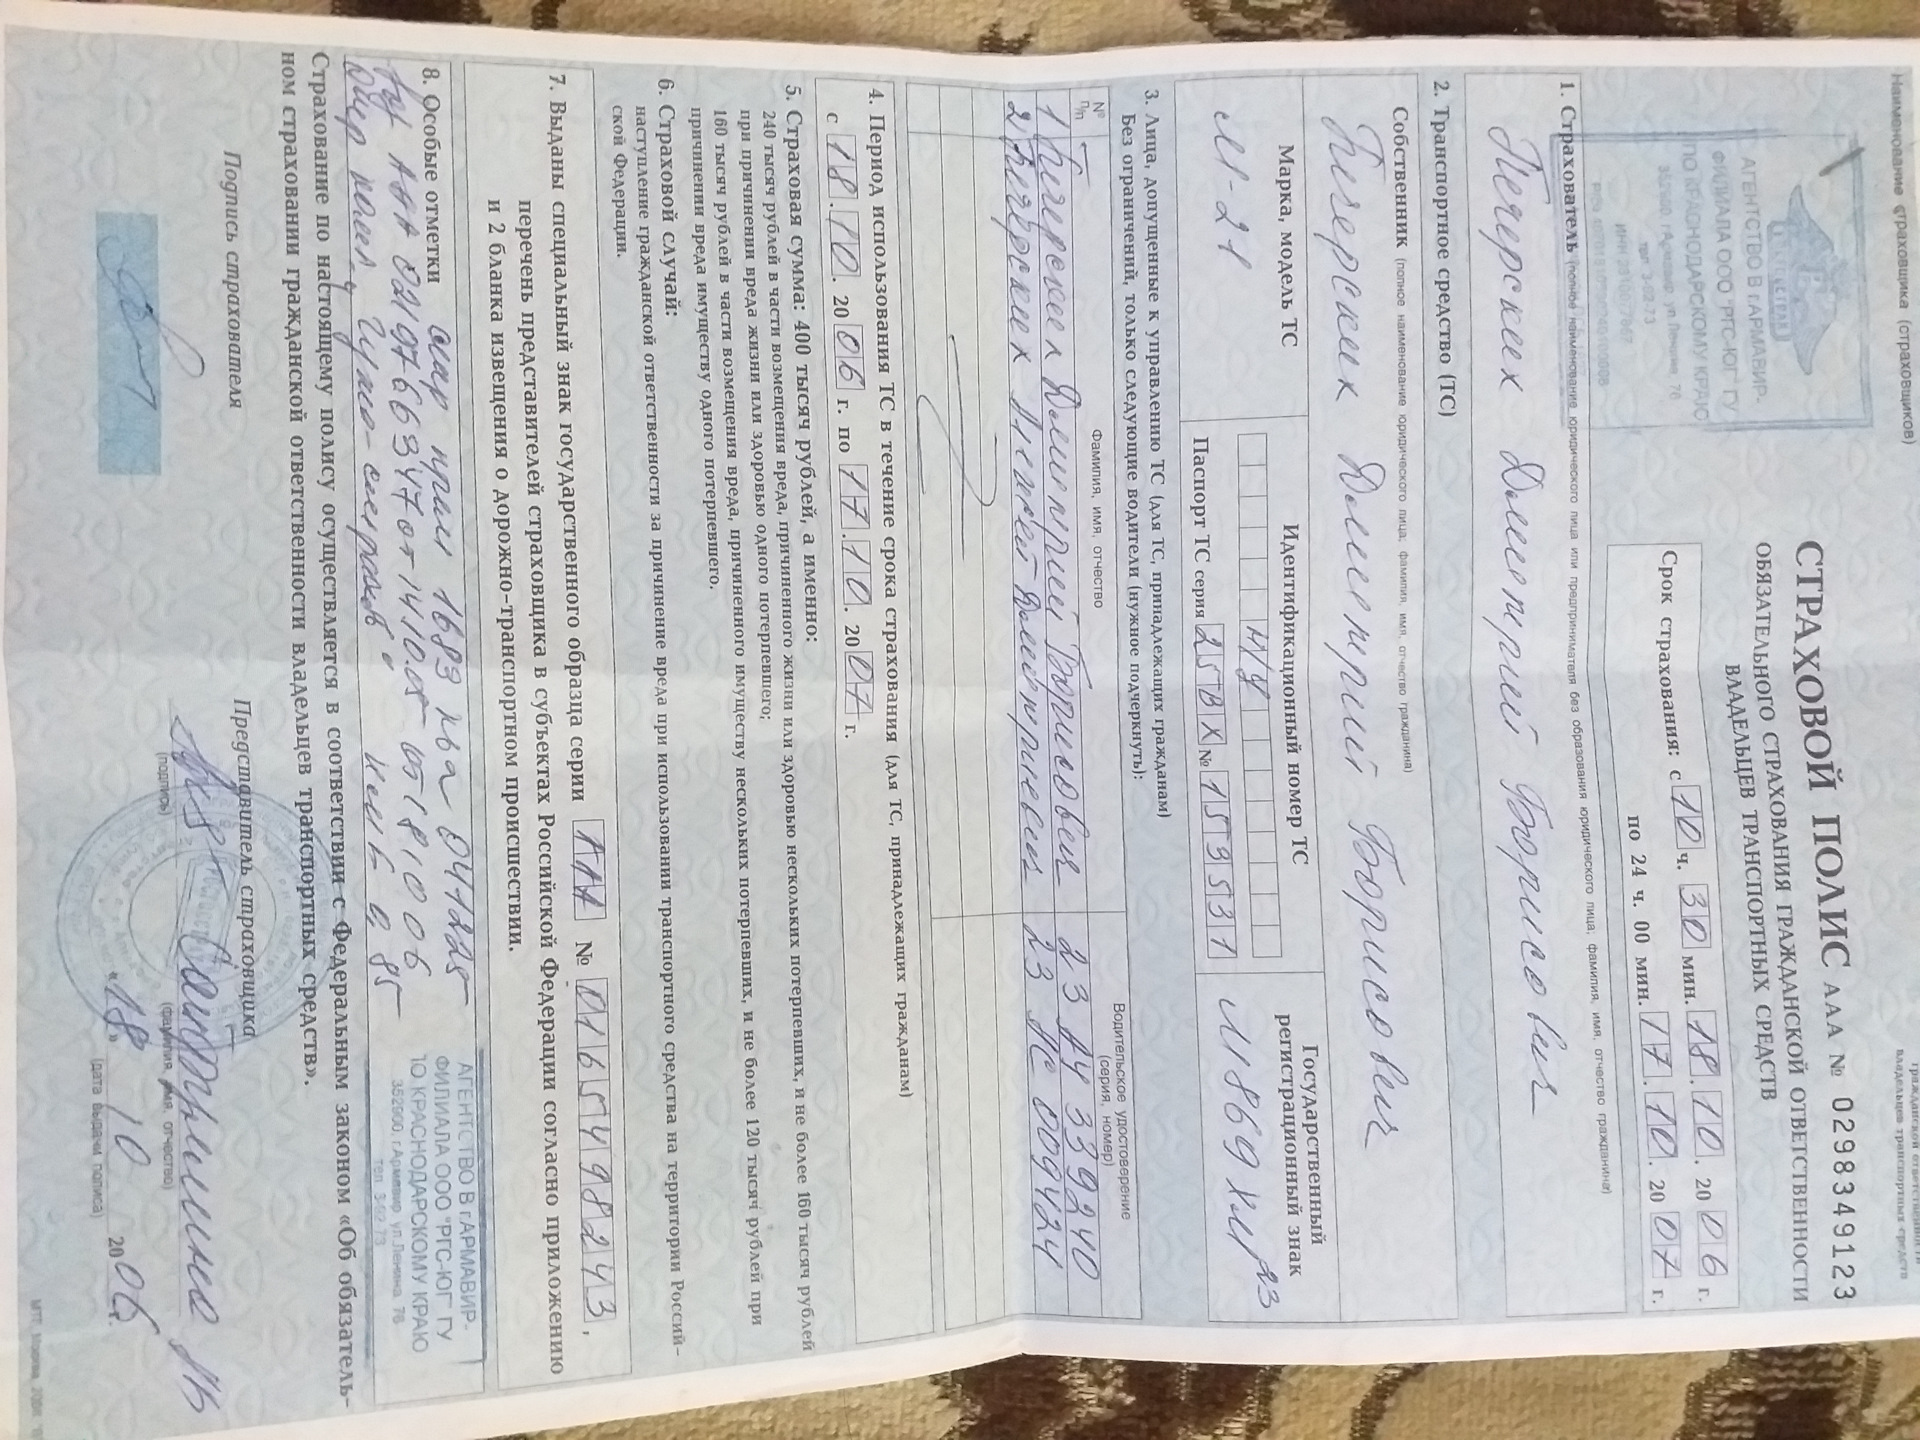 Наименование страховщика (страховщиков)
гражданской ответственности
владельцев транспортных средств
АГЕНТСТВО В г.АРМАВИР-
ФИЛИАЛА ООО "РГС-ЮГ" ГУ
ПО КРАСНОДАРСКОМУ КРАЮ
352900 г.Армавир ул.Ленина, 76
тел. 3-02-73
СТРАХОВОЙ ПОЛИС ААА № 0298349123
ОБЯЗАТЕЛЬНОГО СТРАХОВАНИЯ ГРАЖДАНСКОЙ ОТВЕТСТВЕННОСТИ
ВЛАДЕЛЬЦЕВ ТРАНСПОРТНЫХ СРЕДСТВ
Срок страхования: с 10 ч. 30 мин. 18.10.2006 г.
по 24 ч. 00 мин. 17.10.2007 г.
1. Страхователь (полное наименование юридического лица или предпринимателя без образования юридического лица; фамилия, имя, отчество гражданина)
Дмитрий Борисович
2. Транспортное средство (ТС)
Собственник (полное наименование юридического лица; фамилия, имя, отчество гражданина)
Дмитрий Борисович
Марка, модель ТС
Идентификационный номер ТС
Государственный регистрационный знак
М-21
Н/У
М869ХМ 23
Паспорт ТС серия 25ВХ № 153531
3. Лица, допущенные к управлению ТС (для ТС, принадлежащих гражданам)
Без ограничений, только следующие водители (нужное подчеркнуть):
№ п/п
Фамилия, имя, отчество
Водительское удостоверение (серия, номер)
1 Дмитрий Борисович 23 АУ 339240
2 Дмитриевич 23 009424
4. Период использования ТС в течение срока страхования (для ТС, принадлежащих гражданам)
с 18.10.2006 г. по 17.10.2007 г.
5. Страховая сумма: 400 тысяч рублей, а именно:
240 тысяч рублей в части возмещения вреда, причиненного жизни или здоровью нескольких потерпевших, и не более 160 тысяч рублей
при причинении вреда жизни или здоровью одного потерпевшего;
160 тысяч рублей в части возмещения вреда, причиненного имуществу нескольких потерпевших, и не более 120 тысяч рублей при
причинении вреда имуществу одного потерпевшего.
6. Страховой случай:
наступление гражданской ответственности за причинение вреда при использовании транспортного средства на территории Россий-
ской Федерации.
7. Выданы специальный знак государственного образца серии ААА № 0165498243,
перечень представителей страховщика в субъектах Российской Федерации согласно приложению
и 2 бланка извещения о дорожно-транспортном происшествии.
8. Особые отметки 1683 кв а 041225
ААА 0219766347 от 14.10.05 от 18.10.06
АГЕНТСТВО В г.АРМАВИР-
ФИЛИАЛА ООО "РГС-ЮГ" ГУ
ПО КРАСНОДАРСКОМУ КРАЮ
352900 г.Армавир ул.Ленина, 76
тел. 3-02-73
Страхование по настоящему полису осуществляется в соответствии с Федеральным законом «Об обязатель-
ном страховании гражданской ответственности владельцев транспортных средств».
Подпись страхователя
Представитель страховщика
(подпись)
(фамилия, имя, отчество)
«18» 10 2006 г.
(дата выдачи полиса)